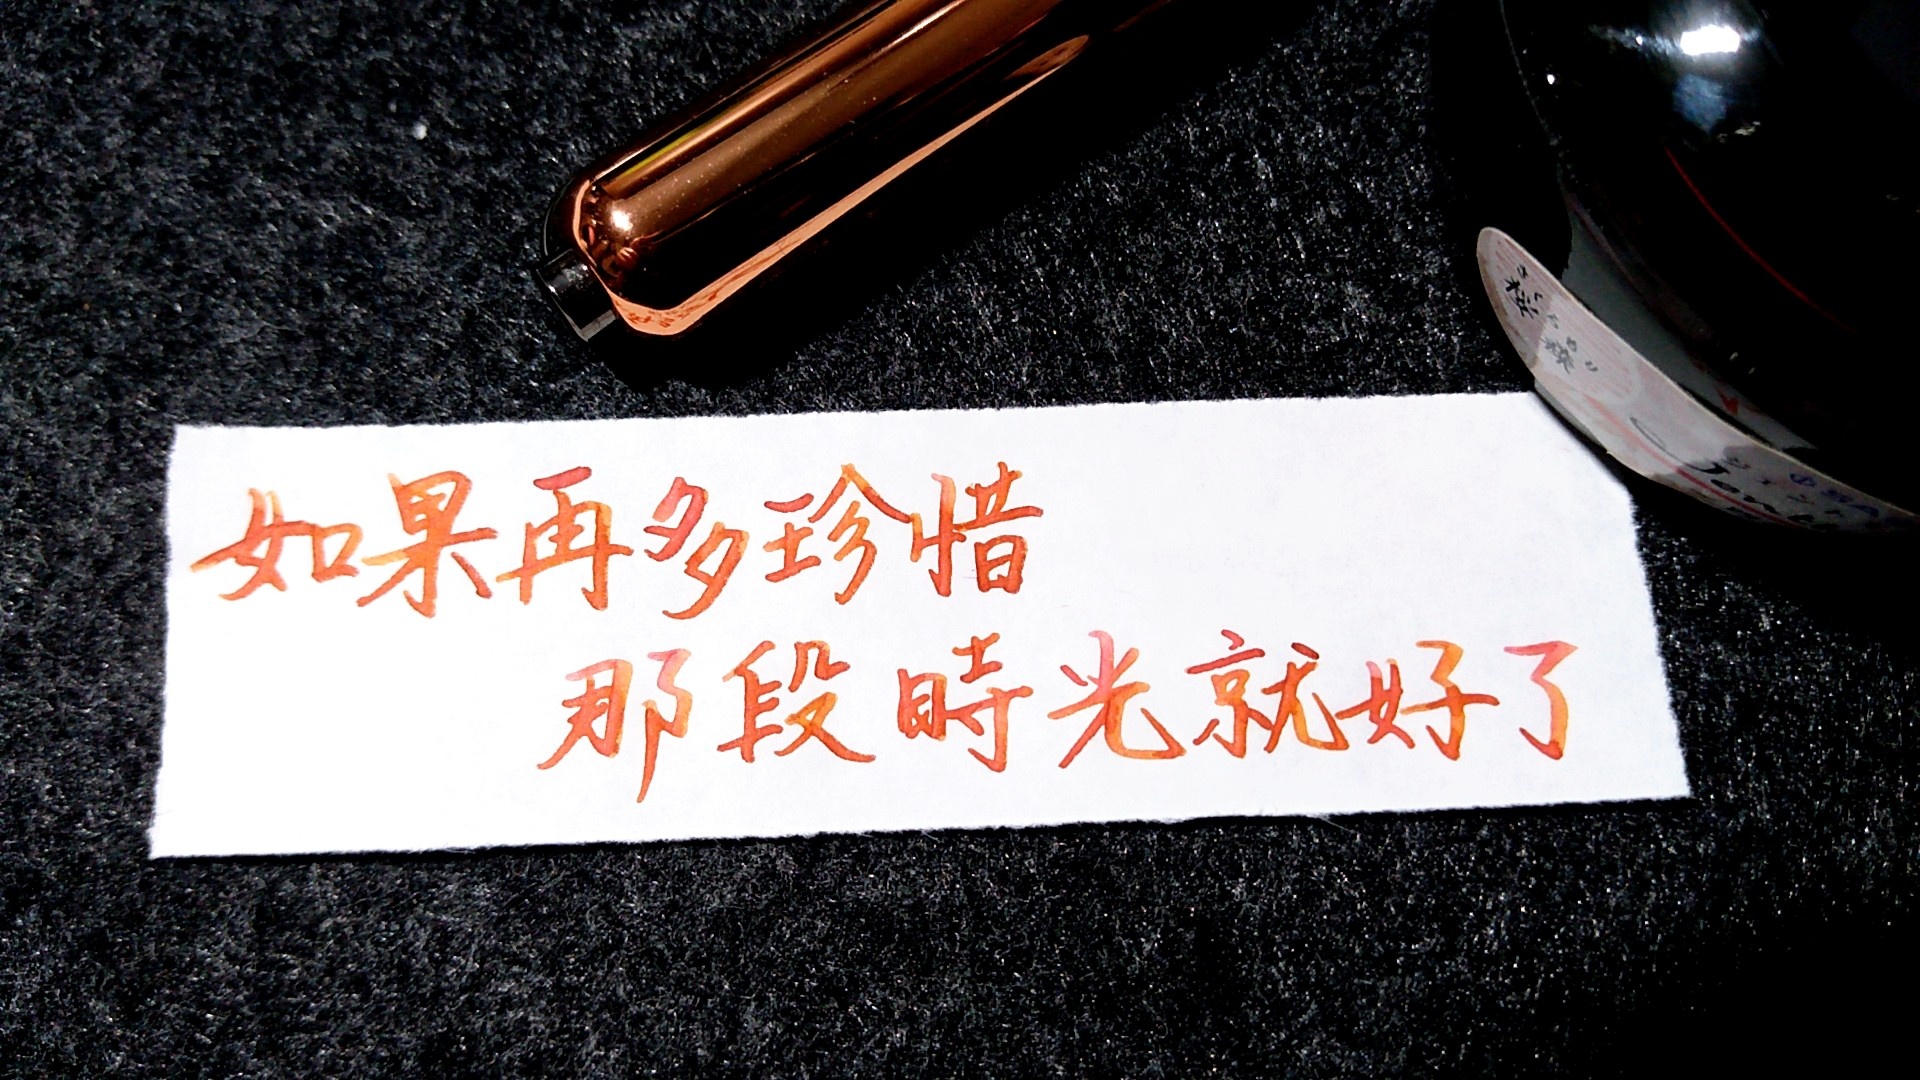 如果再多珍惜
那段時光就好了